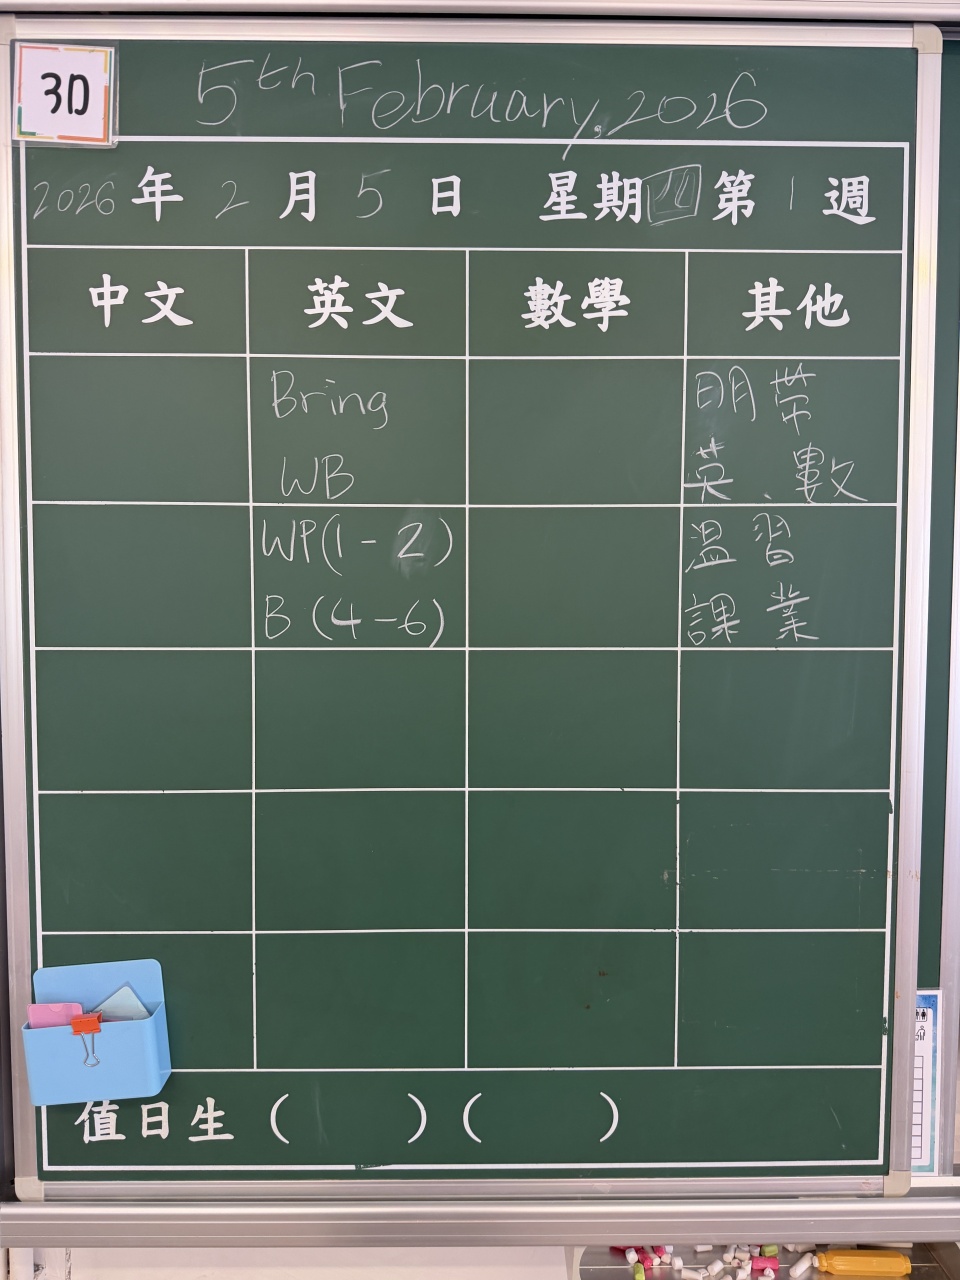 3D
5th February, 2026
2026 年 2 月 5 日 星期四 第 1 週
中文 英文 數學 其他
Bring 明帶
WB 英、數
WP(1-2) 溫習
B (4-6) 課業
值日生 ( ) ( )